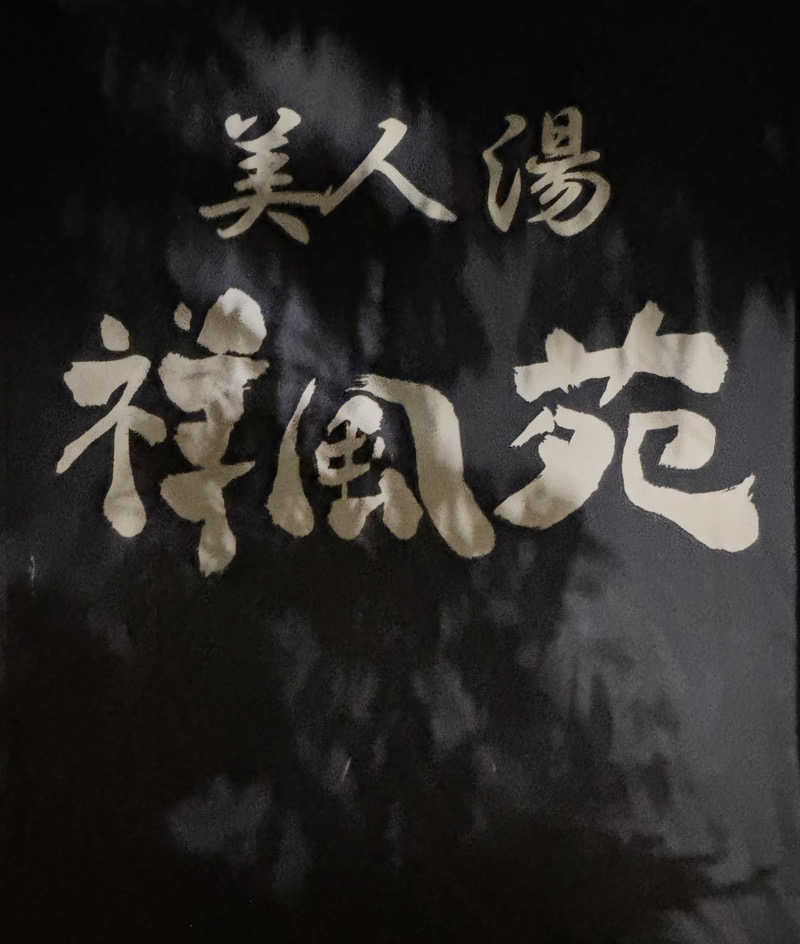 美人湯
禅風苑